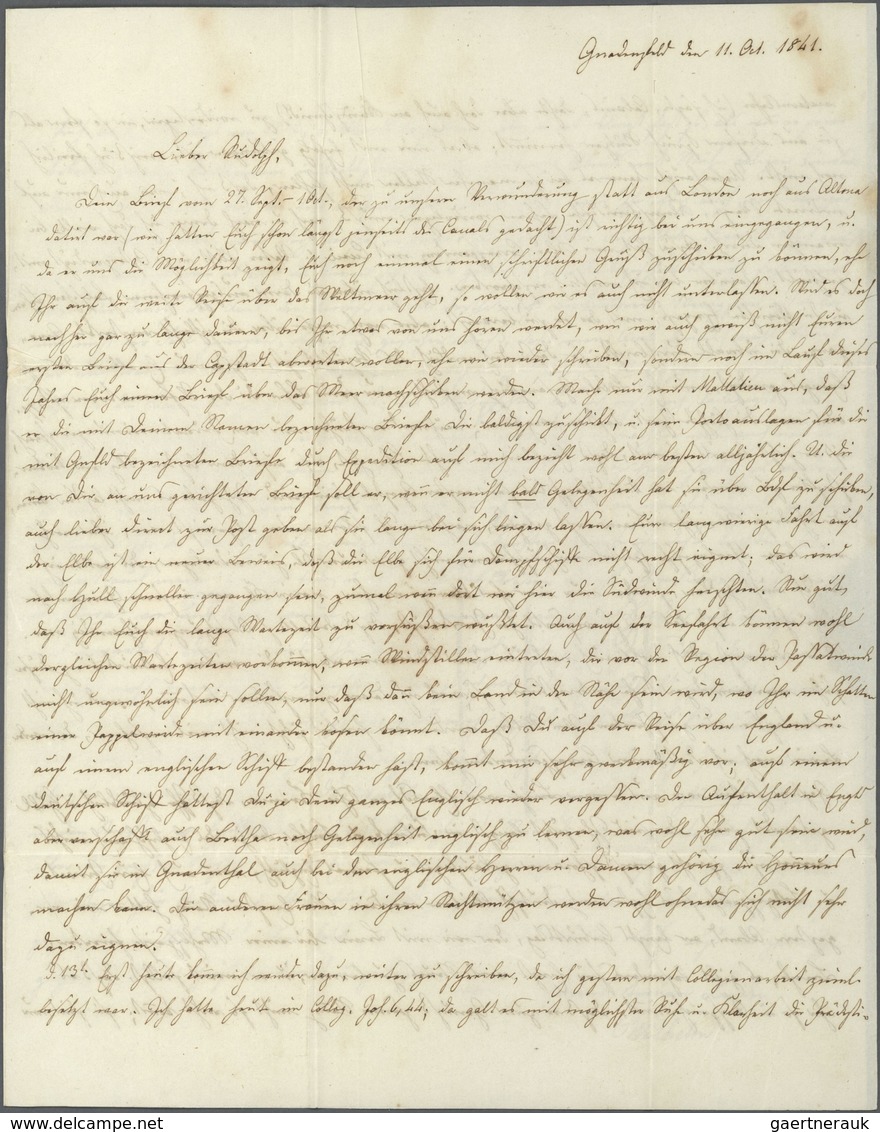 Gnadenfeld den 11. Oct. 1841.
Lieber Rudolph,
Dein Brief vom 27. Sept. – 1 Oct., der zu unsrer Verwunderung statt aus London noch aus Altona
datirt war (wir hatten Euch schon längst jenseits des Canals gedacht) ist richtig bei uns eingegangen, u.
da er uns die Möglichkeit zeigt, Euch noch einmal einen schriftlichen Gruß zuzuschicken zu können, ehe
Ihr auf die weite Reise über das Weltmeer geht, so wollen wir es auch nicht unterlassen. Wird es doch
nachher gar zu lange dauern, bis Ihr etwas von uns hören werdet, wenn wir auch gewiß nicht Euren
ersten Brief aus der Capstadt abwarten wollen, ehe wir wieder schreiben, sondern noch im Lauf dieses
Jahres Euch einen Brief über das Meer nachschicken werden. Mache nur mit Mallalieu aus, daß
er die mit Deinem Namen bezeichneten Briefe Dir baldigst zuschickt, u. sein Portoauslagen für die
mit Gnfld bezeichneten Briefe durch Expedition auf mich bezieht wohl am besten alljährlich. U. die
von Dir an uns gerichteten Briefe soll er, wenn er nicht bald Gelegenheit hat sie über Bdf zu schicken,
auch lieber direct zur Post geben als sie lange bei sich liegen lassen. Eure langwierige Fahrt auf
der Elbe ist ein neuer Beweis, daß die Elbe sich für Dampfschiffe nicht recht eignet; das wird
nach Hull schneller gegangen sein, zumal wenn dort wie hier die Südwinde herrschten. Nur gut,
daß Ihr Euch die lange Wartezeit zu versüßen wußtet. Auch auf der Seefahrt können wohl
dergleichen Wartezeiten vorkommen, wenn Windstillen eintreten, die vor der Region der Passatwinde
nicht ungewöhnlich sein sollen, nur daß dann kein Land in der Nähe sein wird, wo Ihr im Schatten
einer Pappelweide mit einander kosen könnt. Daß Du auf der Reise über England u.
auf einem englischen Schiff bestanden hast, kommt mir sehr zweckmäßig vor; auf einem
deutschen Schiff hättest Du ja Dein ganzes Englisch wieder vergessen. Der Aufenthalt in Engld
aber verschafft auch Bertha noch Gelegenheit englisch zu lernen, was wohl sehr gut sein wird,
damit sie in Gnadenthal auch bei den englischen Herren u. Damen gehörig die Honneurs
machen kann. Die anderen Frauen in ihren Nachtmützen werden wohl ohnedas sich nicht sehr
dazu eignen.
d. 13t. Erst heute komme ich wieder dazu, weiter zu schreiben, da ich gestern mit Collegienarbeit zieml.
besetzt war. Ich hatte heut im Colleg. Joh. 6,44; da galt es mit möglichster Ruhe u. Klarheit die Prädesti-
gaertnerauk
www.delcampe.net